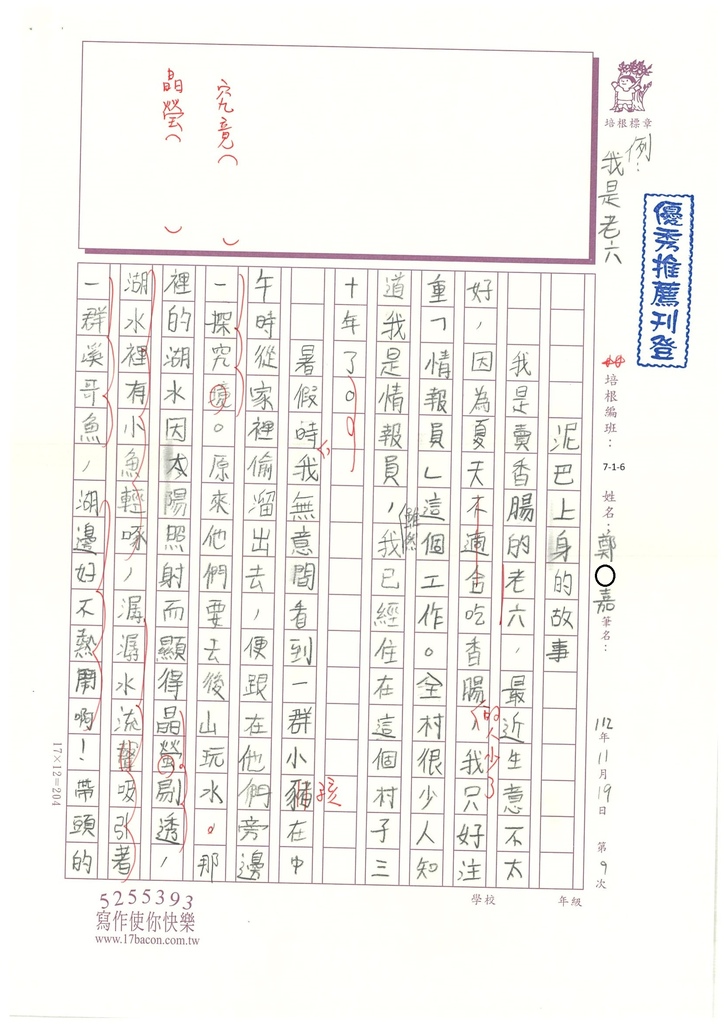 培根標章
例：
我是老六
優秀推薦刊登
培根編班：
7-1-6
姓名：鄭〇嘉
筆名：
112年11月19日
第9次
年級
學校
究竟（　）
晶瑩（　）
泥巴上身的故事
我是賣香腸的老六，最近生意不太
好，因為夏天不適合吃香腸我只好注
的人少了
重「情報員」這個工作。全村很少人知
道我是情報員，我已經住在這個村子三
雖然
十年了。
暑假時我無意間看到一群小豬在中
孩
午時從家裡偷溜出去，便跟在他們旁邊
一探究境。原來他們要去後山玩水。那
裡的湖水因太陽照射而顯得晶螢剔透，
湖水裡有小魚輕啄，潺潺水流聲吸引著
一群溪哥魚，湖邊好不熱鬧啊！帶頭的
17×12=204
5255393
寫作使你快樂
www.17bacon.com.tw